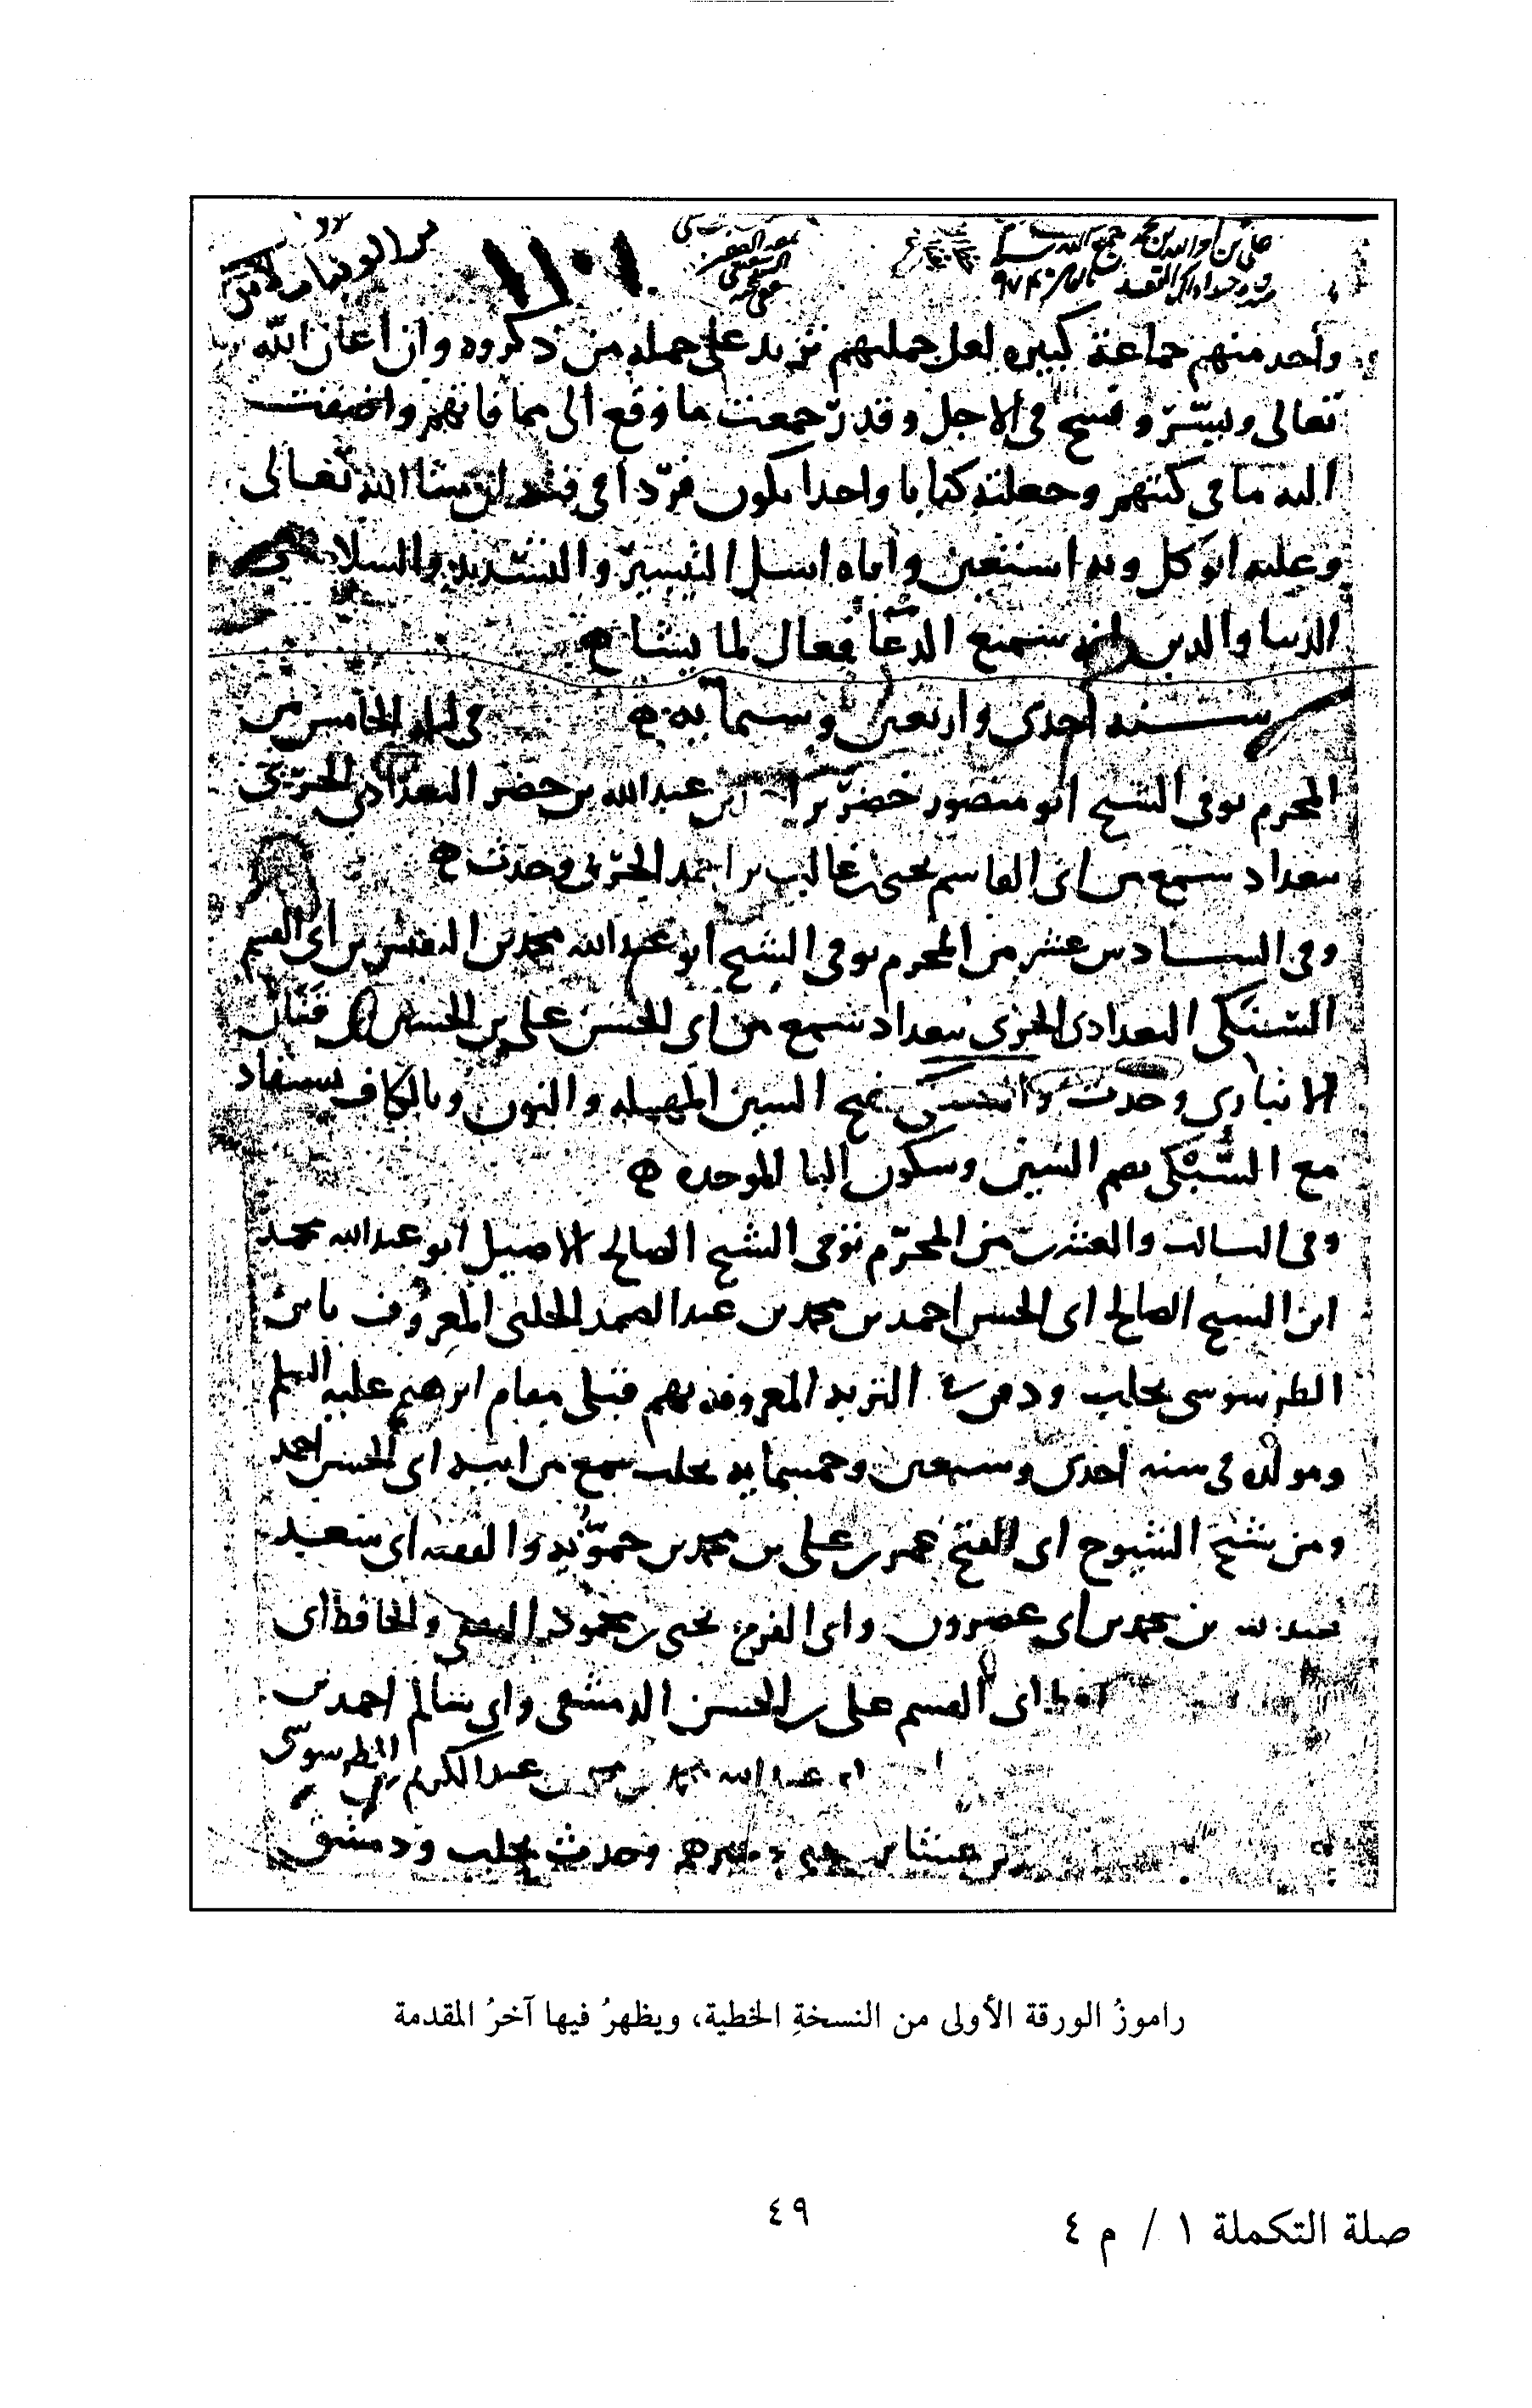 ١١٠١
واحد منهم جماعة كبيره لعل جملتهم تزيد على جمله من ذكروه وان اعان الله
تعالى ويسّر وفسح في الاجل وقدّر جمعت ما وقع الى مما فاتهم واضفت
اليه ما في كتبهم وجعلته كتابا واحدا يكون فردا في فنه ان شا الله تعالى
وعليه اتوكل وبه استعين واياه اسل التيسير والتسديد والسلامه في
الدنيا والدين انه سميع الدعا فعال لما يشا
سنه احدى واربعين وستمايه في ليله الخامس من
المحرم توفي الشيخ ابو منصور خضر بن ابن عبد الله بن خضر البغدادي الحربي
ببغداد سمع من ابي القاسم يحيى بن غالب بن احمد الحربي وحدث
وفي السادس عشر من المحرم توفي الشيخ ابو عبد الله محمد بن النفيس بن ابي القسم
السَّنَكي البغدادي الحربي ببغداد سمع من ابي الحسن علي بن الحسين بن قَنَان
الانباري وحدث والسنكي بفتح السين المهمله والنون وبالكاف يستفاد
مع السُّبْكي بضم السين وسكون البا الموحده
وفي الثالث والعشرين من المحرّم توفي الشيخ الصالح الاصيل ابو عبد الله محمد
ابن الشيخ الصالح ابي الحسن احمد بن محمد بن عبد الصمد الحلبي المعروف بابن
الطرسوسي بحلب ودفن بالتربه المعروفه بهم قبلي مقام ابرهيم عليه السلم
ومولده في سنه احدى وسبعين وخمسمايه بحلب سمع من ابيه ابي الحسن احمد
ومن شيخ الشيوخ ابي الفتح عمر بن علي بن محمد بن حمّويه والفقيه ابي سعيد
عبد الله بن محمد بن ابي عصرون وابي الفرج يحيى بن محمود الثقفي والحافظ ابي
ابي القسم علي بن الحسن الدمشقي وابي سالم احمد بن
عبد الله محمد بن عبد الكريم الطرسوسي
بن عشاير وغيرهم وحدث بحلب ودمشق
راموزُ الورقة الأولى من النسخةِ الخطية، ويظهرُ فيها آخرُ المقدمة
٤٩
صلة التكملة ١ / م ٤